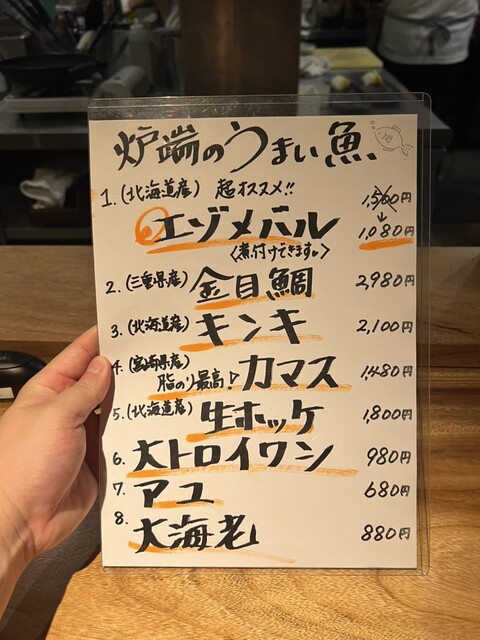 炉端のうまい魚
1.(北海道産) 超オススメ!! 1,560円
エゾメバル ↓ 1,080円
<煮付けできます。>
2.(三重県産) 金目鯛 2,980円
3.(北海道産) キンキ 2,100円
4.(宮崎県産) 脂のり最高! カマス 1,480円
5.(北海道産) 生ホッケ 1,800円
6. 大トロイワシ 980円
7. アユ 680円
8. 大海老 880円